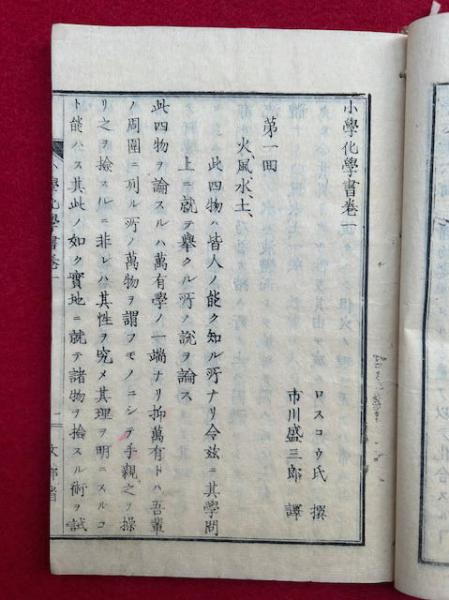 小學化學書卷一
ロスコウ氏 撰
市川盛三郎 譯
第一回
火、風、水、土、
此四物ハ皆人ノ能ク知ル所ナリ今茲ニ其學問
上ニ就テ擧クル所ノ説ヲ論ス
此四物ヲ論スルハ萬有學ノ一端ナリ抑萬有トハ吾輩
ノ周圍ニ列ル所ノ萬物ヲ謂フモノニシテ手親之ヲ操
リ之ヲ撿スルニ非レハ其性ヲ究メ其理ヲ明ニスルコ
ト能ハス其此ノ如ク實地ニ就テ諸物ヲ撿スル術ヲ試
小學化學書卷一
一
文部省